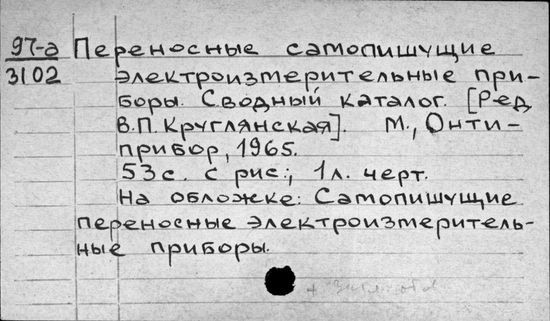 97-а Переносные самопишущие
3102 электроизмерительные при-
боры. Сводный каталог. [Ред.
В.П. Круглянская]. М., Онти-
прибор, 1965.
53с. с рис.; 1л. черт.
На обложке: Самопишущие
переносные электроизмеритель-
ные приборы.